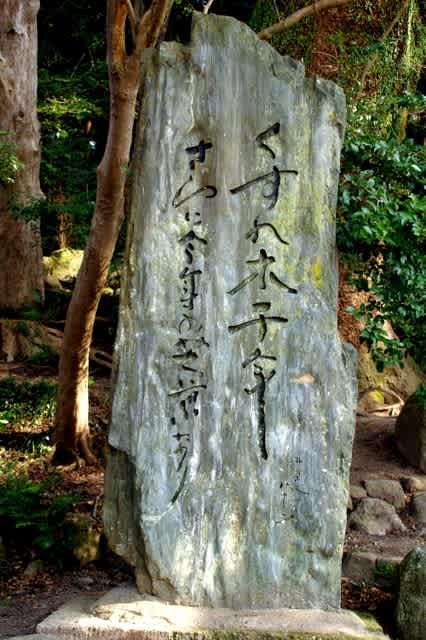 くすの木千年
さらに今年の若葉なり